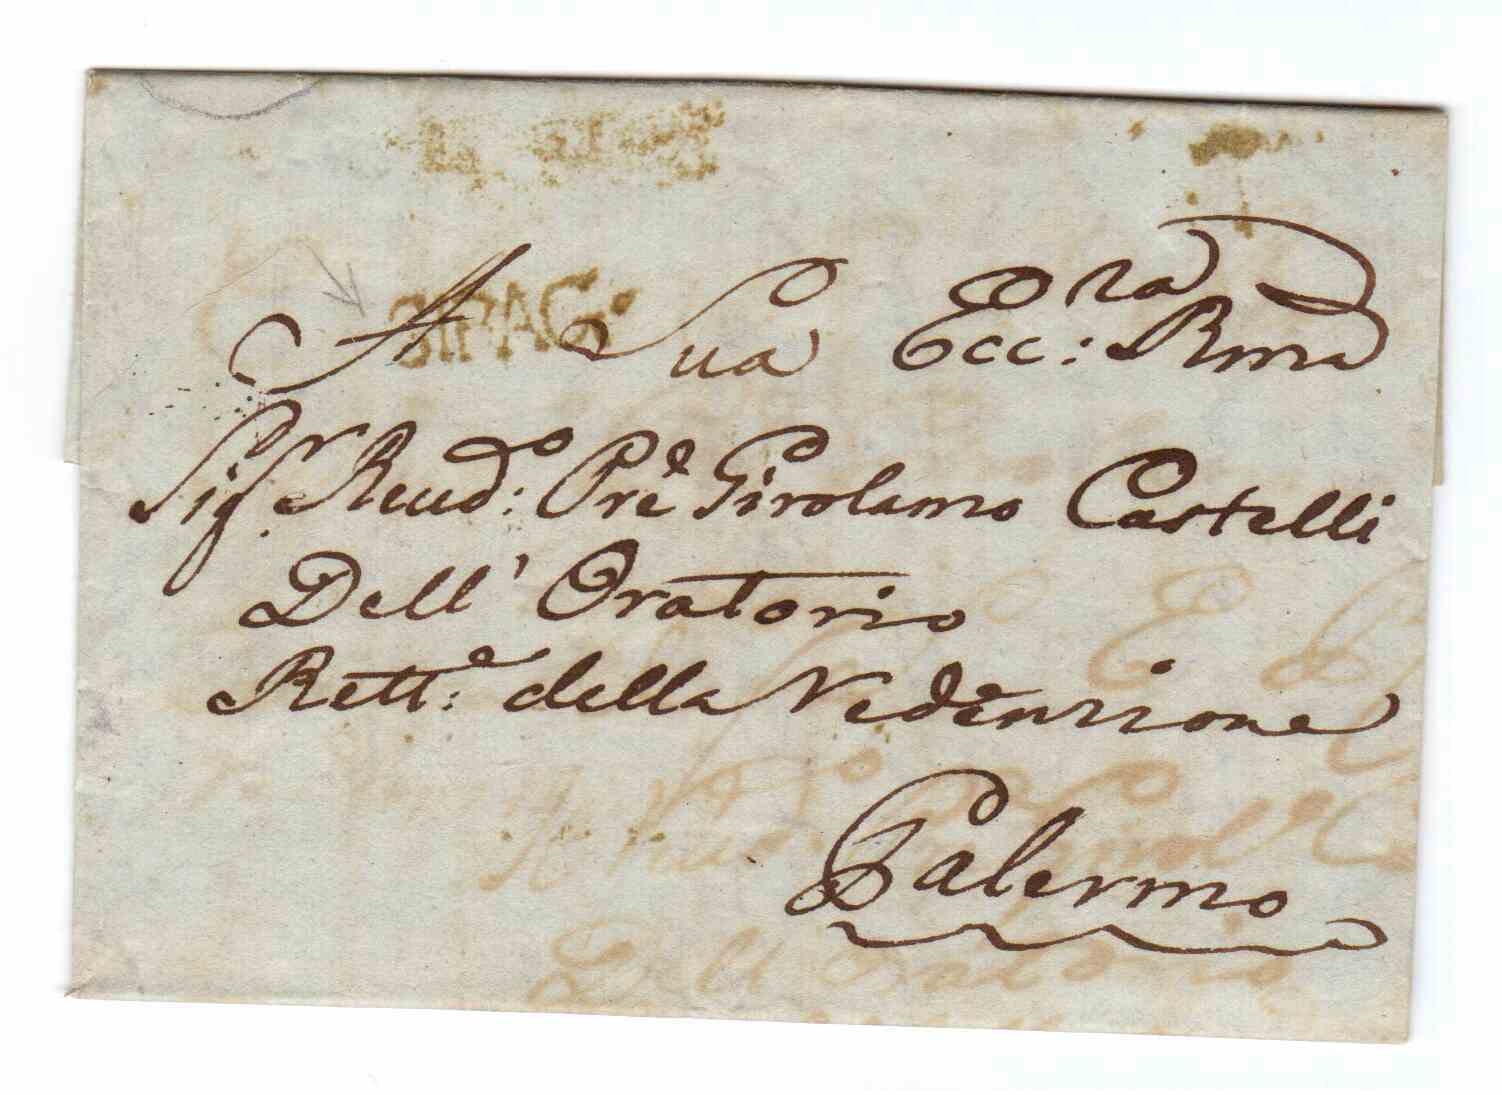 SIPAG:
A Sua Ecc:za Rma
Sigr Reud:o Pre Girolamo Castelli
Dell' Oratorio
Rett:e della Redenzione
Palermo